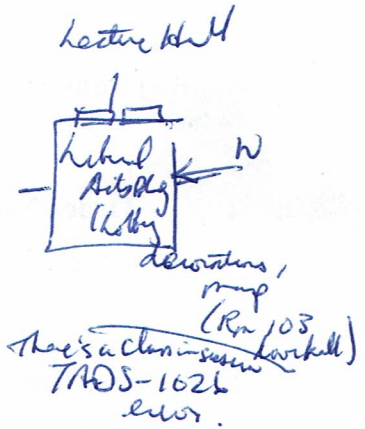 Lecture Hall
Liberal
Arts Bldg
(Lobby
W
decorations,
(Rm 103
There's a class in session
TADS-1026
error.